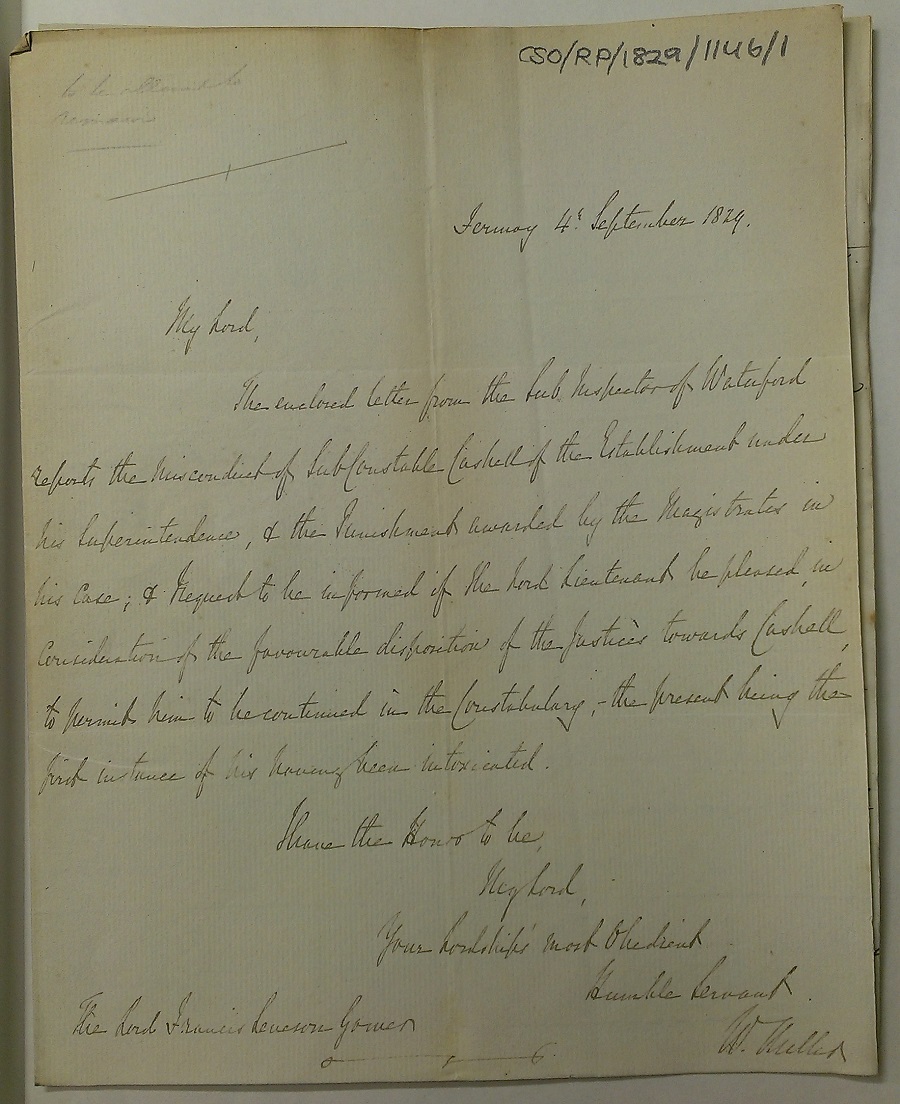 CSO/RP/1829/1146/1
to be allowed to
remain
Fermoy 4th September 1829.
My Lord,
The enclosed letter from the Sub Inspector of Waterford
reports the misconduct of Sub Constable Cashell of the Establishment under
his Superintendence, & the Punishment awarded by the Magistrates in
his case; & I request to be informed if the Lord Lieutenant be pleased, in
consideration of the favourable disposition of the Justices towards Cashell,
to permit him to be continued in the Constabulary, - the present being the
first instance of his having been intoxicated.
I have the Honor to be,
My Lord,
Your Lordship's most Obedient
Humble Servant
The Lord Francis Leveson Gower
W. Miller